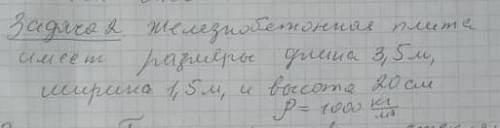 Задача 2 Железнобетонная плита
имеет размеры длина 3,5м,
ширина 1,5м, и высота 20см
P = 1000 кг/м³